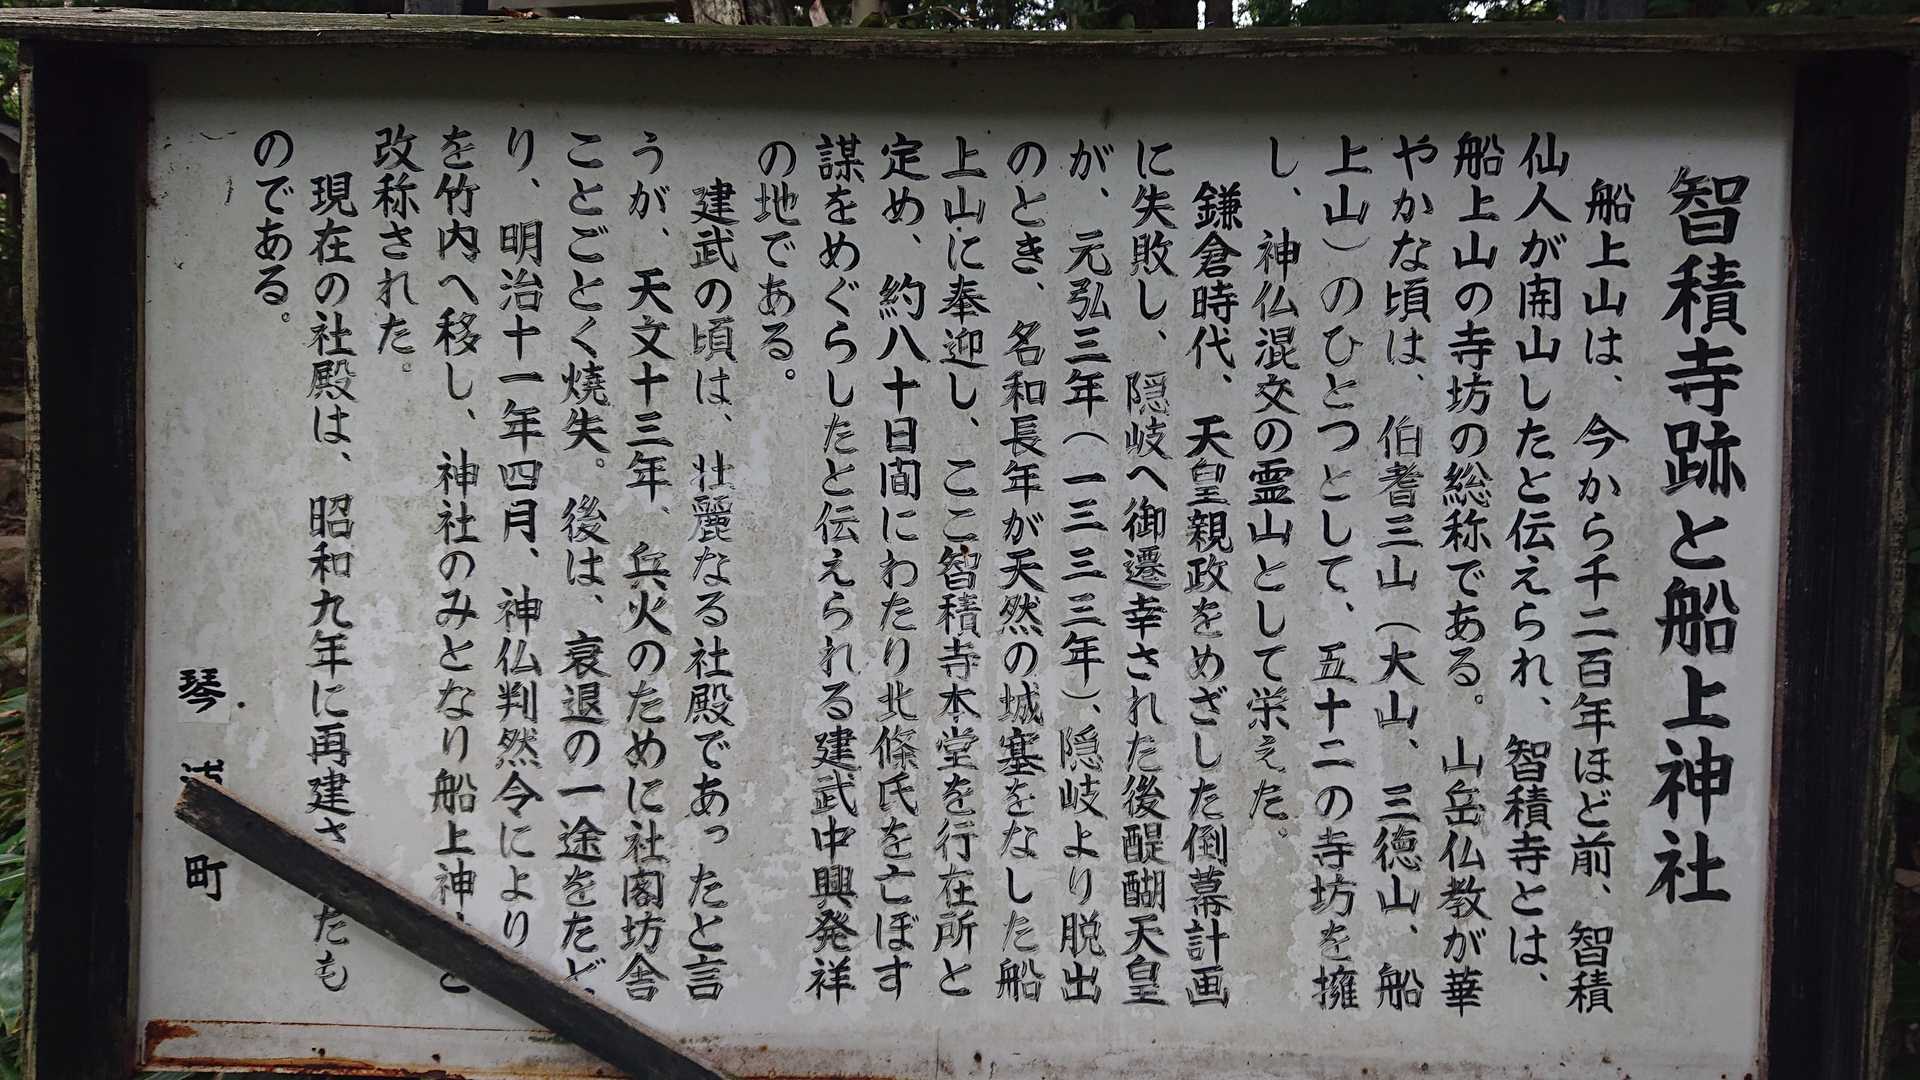 智積寺跡と船上神社
船上山は、今から千二百年ほど前、智積
仙人が開山したと伝えられ、智積寺とは、
船上山の寺坊の総称である。山岳仏教が華
やかな頃は、伯耆三山（大山、三徳山、船
上山）のひとつとして、五十二の寺坊を擁
し、神仏混交の霊山として栄えた。
鎌倉時代、天皇親政をめざした倒幕計画
に失敗し、隠岐へ御遷幸された後醍醐天皇
が、元弘三年（一三三三年）、隠岐より脱出
のとき、名和長年が天然の城塞をなした船
上山に奉迎し、ここ智積寺本堂を行在所と
定め、約八十日間にわたり北條氏を亡ぼす
謀をめぐらしたと伝えられる建武中興発祥
の地である。
建武の頃は、壮麗なる社殿であったと言
うが、天文十三年、兵火のために社閣坊舎
ことごとく燒失。後は、衰退の一途をたど
り、明治十一年四月、神仏判然令により
を竹内へ移し、神社のみとなり船上神 と
改称された。
現在の社殿は、昭和九年に再建さ たも
のである。
琴 町